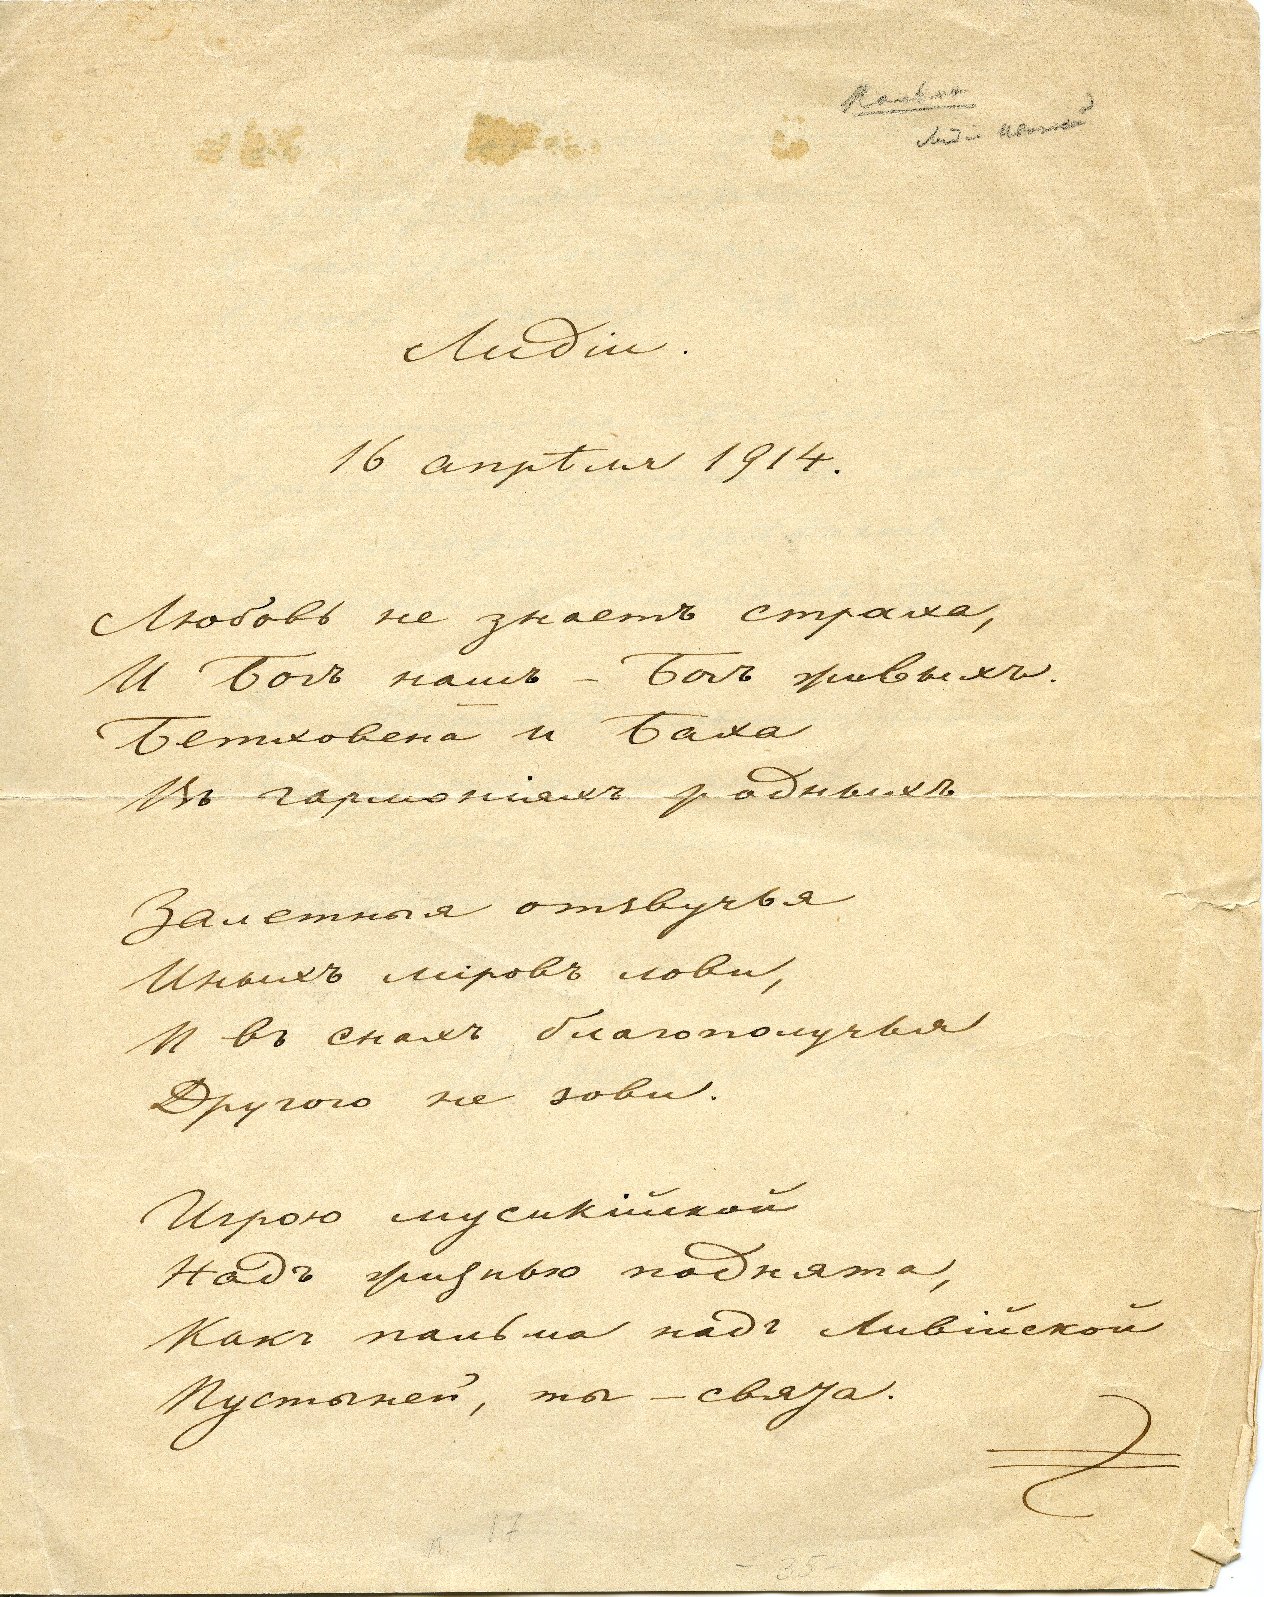 Лидіи.
16 апрѣля 1914.
Любовь не знаетъ страха,
И Богъ нашъ – Богъ живыхъ.
Бетховена и Баха
Въ гармоніяхъ родныхъ
Залетныя отзвучья
Иныхъ міровъ лови,
И въ снахъ благополучья
Другого не зови.
Игрою мусикійской
Надъ жизнью поднята,
Какъ пальма надъ Ливійской
Пустыней, ты – свята.
17
- 35 -